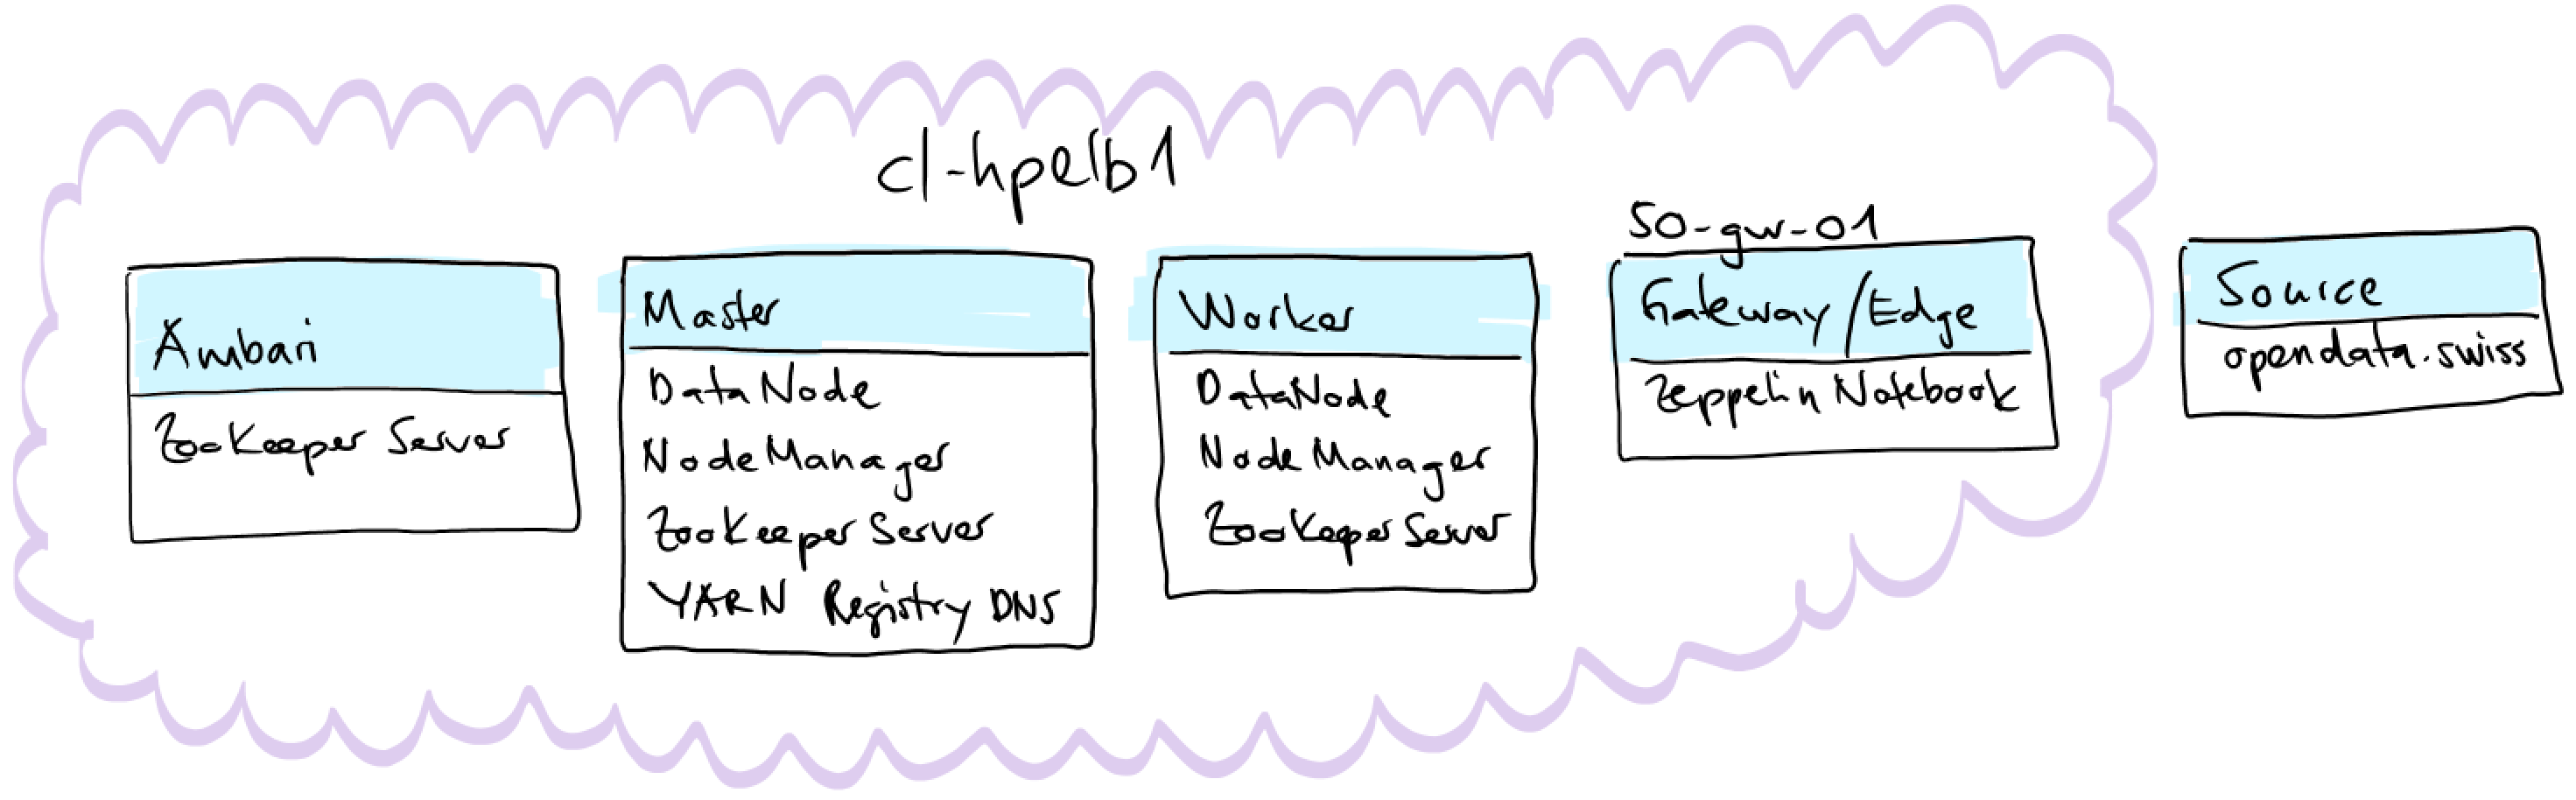 cl-hpelb1
Ambari
ZooKeeper Server
Master
DataNode
NodeManager
ZooKeeper Server
YARN Registry DNS
Worker
DataNode
NodeManager
ZooKeeper Server
SO-gw-01
Gateway/Edge
Zeppelin Notebook
Source
opendata.swiss